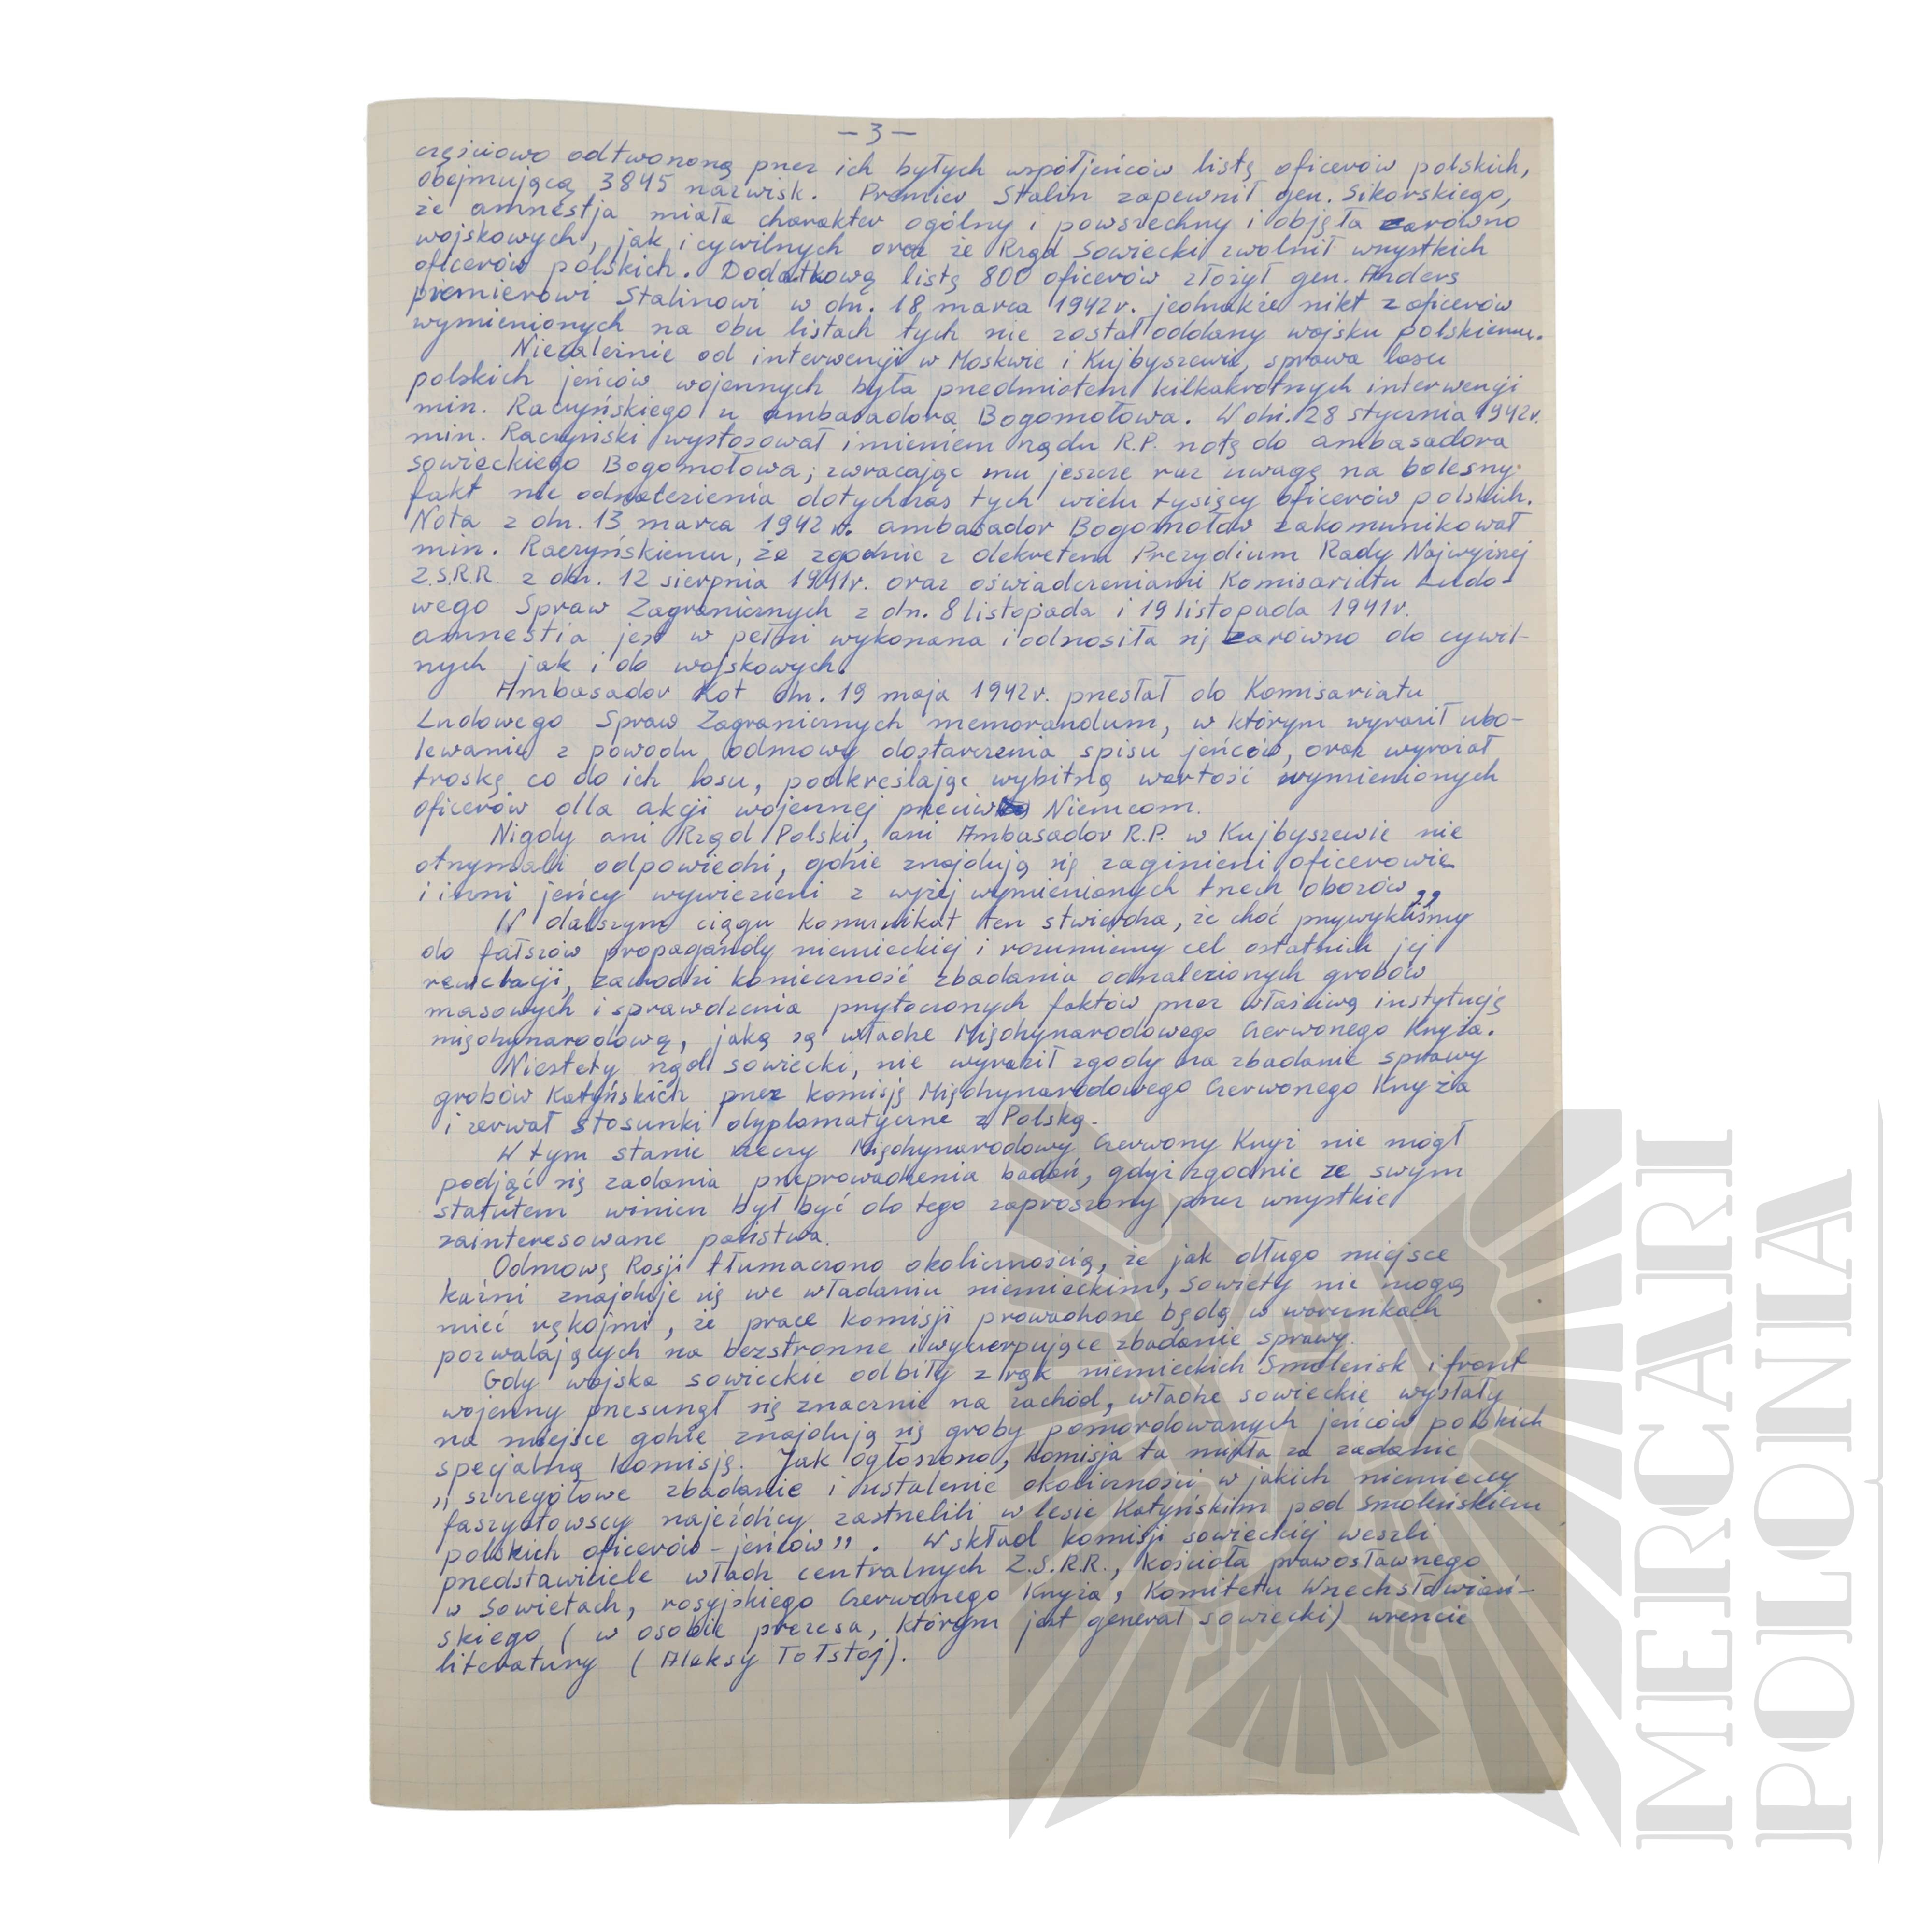 — 3 —
częściowo odtworzoną przez ich byłych współjeńców listę oficerów polskich,
obejmującą 3845 nazwisk. Premier Stalin zapewnił gen. Sikorskiego,
że amnestja miała charakter ogólny i powszechny i objęła zarówno
wojskowych, jak i cywilnych oraz że Rząd Sowiecki zwolnił wszystkich
oficerów polskich. Dodatkową listę 800 oficerów złożył gen. Anders
premierowi Stalinowi w dn. 18 marca 1942 r. jednakże nikt z oficerów
wymienionych na obu listach tych nie został oddany wojsku polskiemu.
Niezależnie od interwencji w Moskwie i Kujbyszewie, sprawa losu
polskich jeńców wojennych była przedmiotem kilkakrotnych interwencji
min. Raczyńskiego u ambasadora Bogomołowa. W dn. 28 stycznia 1942r.
min. Raczyński wystosował imieniem rządu R.P. notę do ambasadora
sowieckiego Bogomołowa, zwracając mu jeszcze raz uwagę na bolesny
fakt nie odnalezienia dotychczas tych wielu tysięcy oficerów polskich.
Nota z dn. 13 marca 1942 r. ambasador Bogomołow zakomunikował
min. Raczyńskiemu, że zgodnie z dekretem Prezydium Rady Najwyższej
Z.S.R.R. z dn. 12 sierpnia 1941r. oraz oświadczeniami Komisariatu Ludo-
wego Spraw Zagranicznych z dn. 8 listopada i 19 listopada 1941r.
amnestia jest w pełni wykonana i odnosiła się zarówno do cywil-
nych jak i do wojskowych.
Ambasador Kot dn. 19 maja 1942r. przesłał do Komisariatu
Ludowego Spraw Zagranicznych memorandum, w którym wyraził ubo-
lewanie z powodu odmowy dostarczenia spisu jeńców, oraz wyraział
troskę co do ich losu, podkreślając wybitną wartość wymienionych
oficerów dla akcji wojennej przeciw Niemcom.
Nigdy ani Rząd Polski, ani Ambasador R.P. w Kujbyszewie nie
otrzymali odpowiedzi, gdzie znajdują się zaginieni oficerowie
i inni jeńcy wywiezieni z wyżej wymienionych trzech obozów"
W dalszym ciągu komunikat ten stwierdza, że choć przywykliśmy
do fałszów propagandy niemieckiej i rozumiemy cel ostatnich jej
rewelacji, zachodzi konieczność zbadania odnalezionych grobów
masowych i sprawdzenia przytoczonych faktów przez właściwą instytucję
międzynarodową, jaką są władze Międzynarodowego Czerwonego Krzyża.
Niestety rząd sowiecki, nie wyraził zgody na zbadanie sprawy
grobów Katyńskich przez komisję Międzynarodowego Czerwonego Krzyża
i zerwał stosunki dyplomatyczne z Polską.
W tym stanie rzeczy Międzynarodowy Czerwony Krzyż nie mógł
podjąć się zadania przeprowadzenia badań, gdyż zgodnie ze swym
statutem winien był być do tego zaproszony przez wszystkie
zainteresowane państwa.
Odmowę Rosji tłumaczono okolicznością, że jak długo miejsce
kaźni znajduje się we władaniu niemieckim, Sowiety nie mogą
mieć rękojmi, że prace komisji prowadzone będą w warunkach
pozwalających na bezstronne i wyczerpujące zbadanie sprawy.
Gdy wojska sowieckie odbiły z rąk niemieckich Smoleńsk i front
wojenny przesunął się znacznie na zachód, władze sowieckie wysłały
na miejsce gdzie znajdują się groby pomordowanych jeńców polskich
specjalną komisję. Jak ogłoszono, komisja ta miała za zadanie
„szczegółowe zbadanie i ustalenie okoliczności w jakich niemieccy
faszystowscy najeźdźcy zastrzelili w lesie Katyńskim pod Smoleńskiem
polskich oficerów-jeńców". W skład komisji sowieckiej weszli
przedstawiciele władz centralnych Z.S.R.R., kościoła prawosławnego
w Sowietach, rosyjskiego Czerwonego Krzyża, Komitetu Wszechsłowiań-
skiego (w osobie prezesa, którym jest generał sowiecki) wreszcie
literatury (Aleksy Tołstoj).
MERCARI
POLONIA